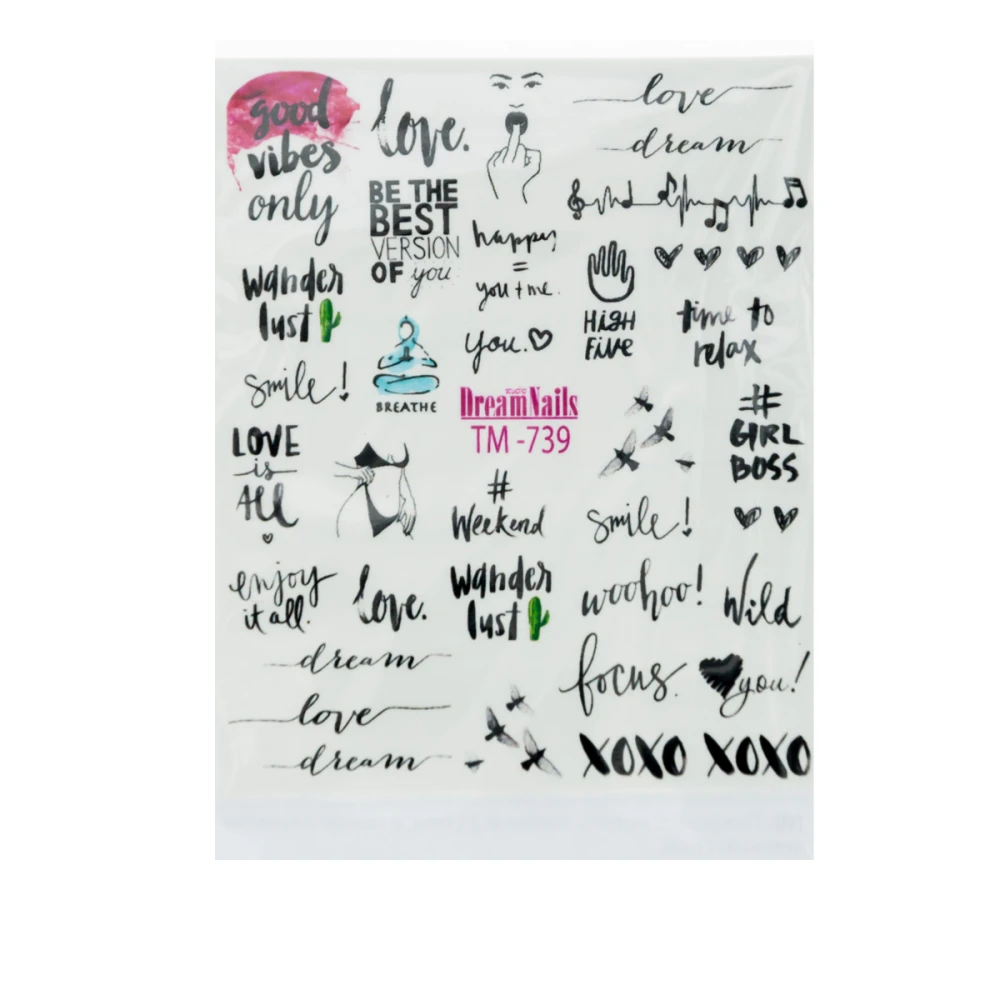 good
vibes
only
love.
love
dream
BE THE
BEST
VERSION
OF you
happy
=
you + me.
wander
lust
HIGH
FIVE
time to
relax
you.
smile!
BREATHE
STUDIO
DreamNails
TM -739
#
GIRL
BOSS
LOVE
is
All
#
Weekend
smile!
enjoy
it all.
love.
wander
lust
woohoo!
Wild
dream
love
dream
focus.
you!
XOXO XOXO